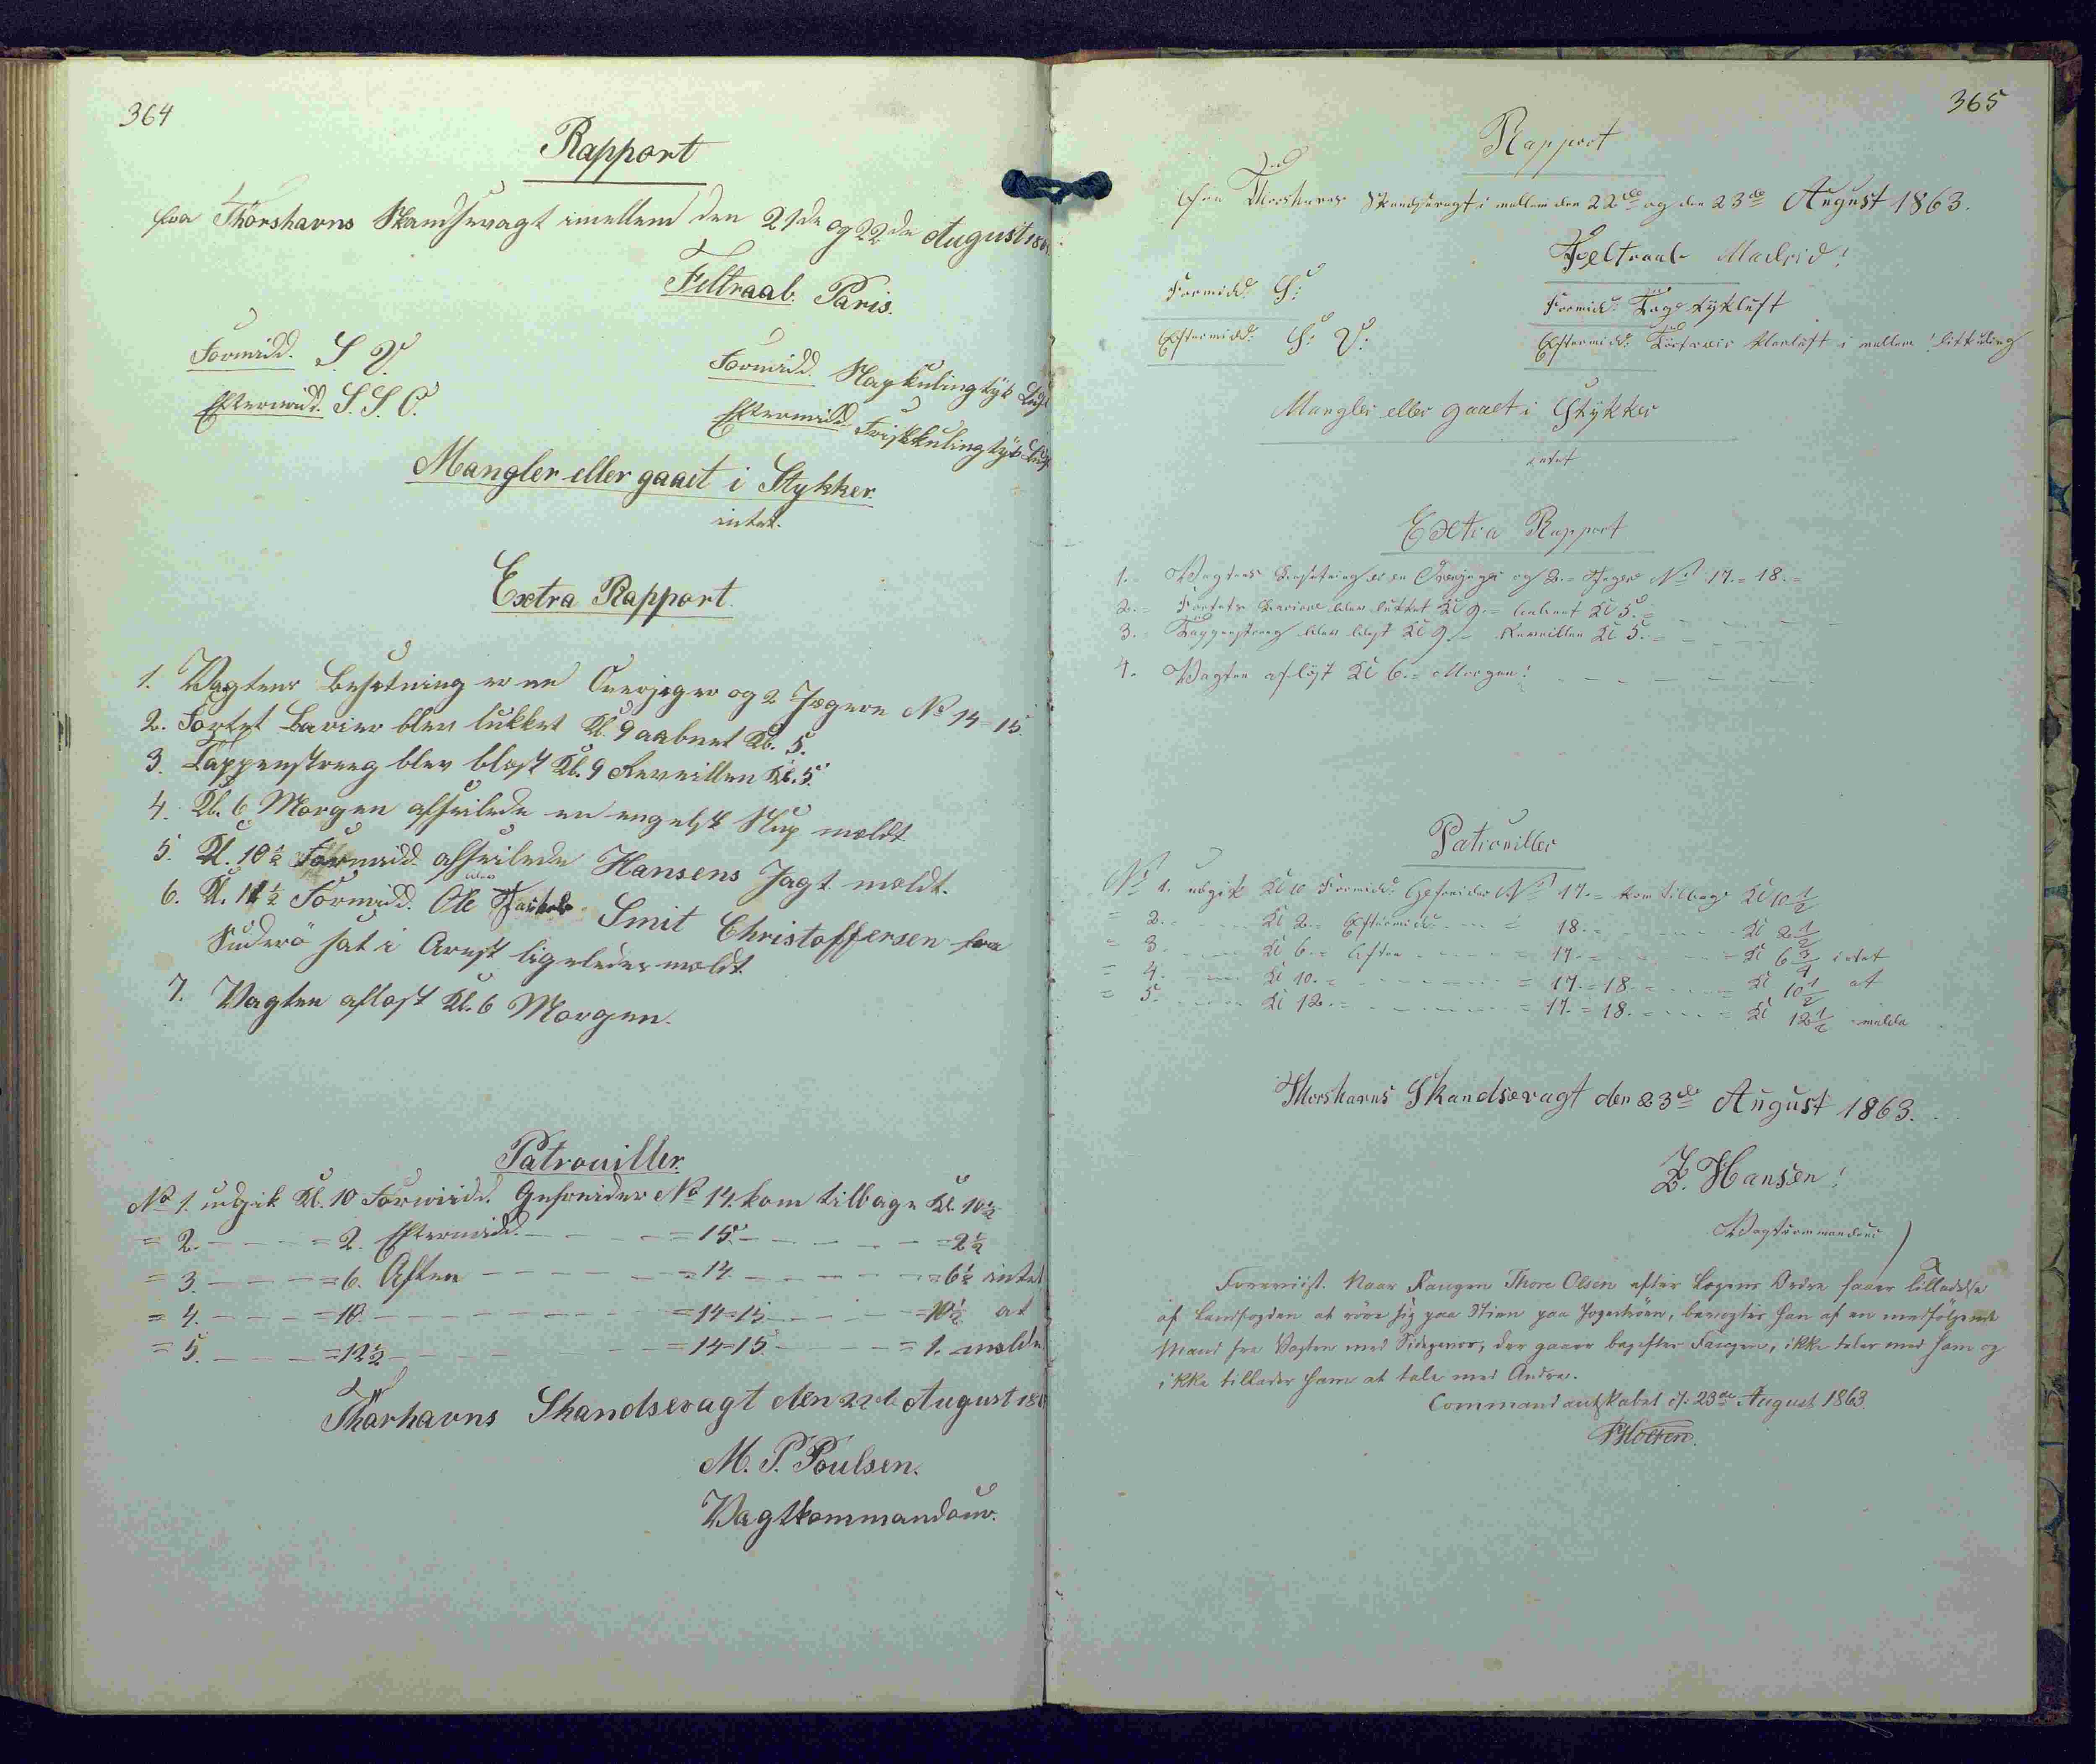 364
Rapport
fra Thorshavns Skandsevagt imellem den 21de og 22de August 186
Feltraab. Paris.
Formidd. S. V.
Formidd Flaukuling tyk Luft
Eftermidd. S. S. O.
Eftermidd. Friskkuling tyk Luft
Mangler eller gaaet i Stykker.
intet.
Extra Rapport.
1. Vagtens Besetning er en Overjeger og 2 Jegere No 14=15.
2. Fortet Barier blev lukket Kl. 9 aabnet Kl. 5.
3. Tappenstreg blev blæst Kl. 9 Reveillen Kl. 5.
4. Kl. 6 Morgen afseilede en engelsk Slup meldt
5. Kl. 10½ Formidd. afseilede Hansens Jagt meldt.
6. Kl. 11½ Formidd. Ole Smit Christoffersen fra
Suderö sat i Arest ligeledes meldt.
7. Vagten aflöst Kl. 6 Morgen.
Patrouiller.
No 1. udgik Kl. 10 Formidd. Gefreider No 14. kom tilbage Kl. 10½
= 2. - - - = 2. Eftermidd. - - - = 15. - - - = 2½
= 3. - - - = 6. Aften - - - = 14. - - - = 6½ intet
= 4. - - - = 10. - - - = 14=15. - - - = 10½ at
= 5. - - - = 12½ - - - = 14=15. - - - = 1. melde
Thorhavns Skandsevagt den 22de August 186
M. P. Poulsen.
Vagtkommandeur.
365
Rapport
Fra Thorshavns Skandsevagt i mellem den 22de og den 23de August 1863.
Feltraab Madrid!
Formidd: S:
Formidd: Tage tykluft
Eftermidd: S: V:
Eftermidd: Klarluft i mellem
Mangler eller gaaet i Stykker
intet
Extra Rapport
1. Vagtens Besetning er en Overjeger og 2.= Jeger No 17.= 18.=
2.= Fortets Bariere blev lukket Kl 9.= aabnet Kl 5.=
3.= Tappenstreg blev blest Kl 9.= Reveillen Kl 5.=
4. Vagten aflöst Kl 6.= Morgen!
Patrouiller
No 1. udgik Kl 10 Formidd: Gefreider No 17.= kom tilbage Kl 10½
= 2. - - - Kl 2.= Eftermidd: - - - = 18.= - - - Kl 2½
= 3. - - - Kl 6.= Aften - - - = 17.= - - - = Kl 6¾ intet
= 4. - - - Kl 10.= - - - = 17.= 18.= - - - Kl 10½ at
= 5. - - - Kl 12.= - - - = 17.= 18.= - - - = Kl 12½ melde
Thorshavns Skandsevagt den 23de August 1863.
Z. Hansen!
Vagtcommandeur
Foreviist. Naar Fangen Thore Olsen efter Lægens Ordre faaer Tilladelse
af Landfogden at röre sig paa Stien paa , bevogtes han af en medfölgende
Mand fra Vagten med Sidegevær, der gaaer bagefter Fangen, ikke taler med ham og
ikke tillader ham at tale med Andre.
Commandantskabet d: 23de August 1863.
HCMüller.